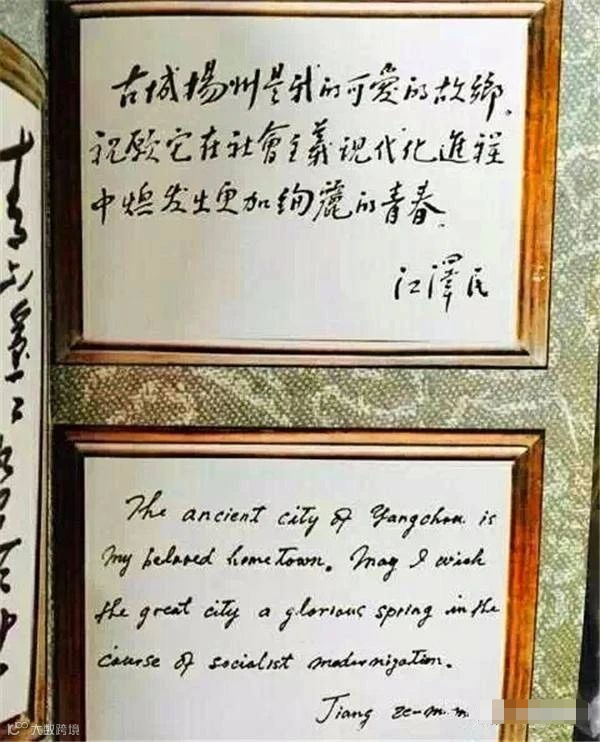 古城揚州是我的可愛的故鄉。
祝願它在社會主義現代化進程
中煥发生更加絢麗的青春.
江澤民
The ancient city of Yangchou is
my beloved hometown. May I wish
the great city a glorious spring in the
course of socialist modernization.
Jiang Ze-min
大数跨境